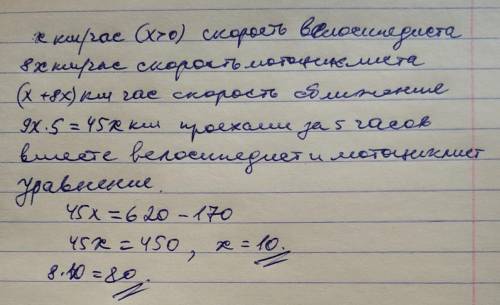 x км/час (x>0) скорость велосипедиста
8x км/час скорость мотоциклиста
(x+8x) км час скорость сближение
9x·5=45x км проехали за 5 часов
вместе велосипедист и мотоциклист
уравнение.
45x=620-170
45x=450, x=10.
8·10=80.